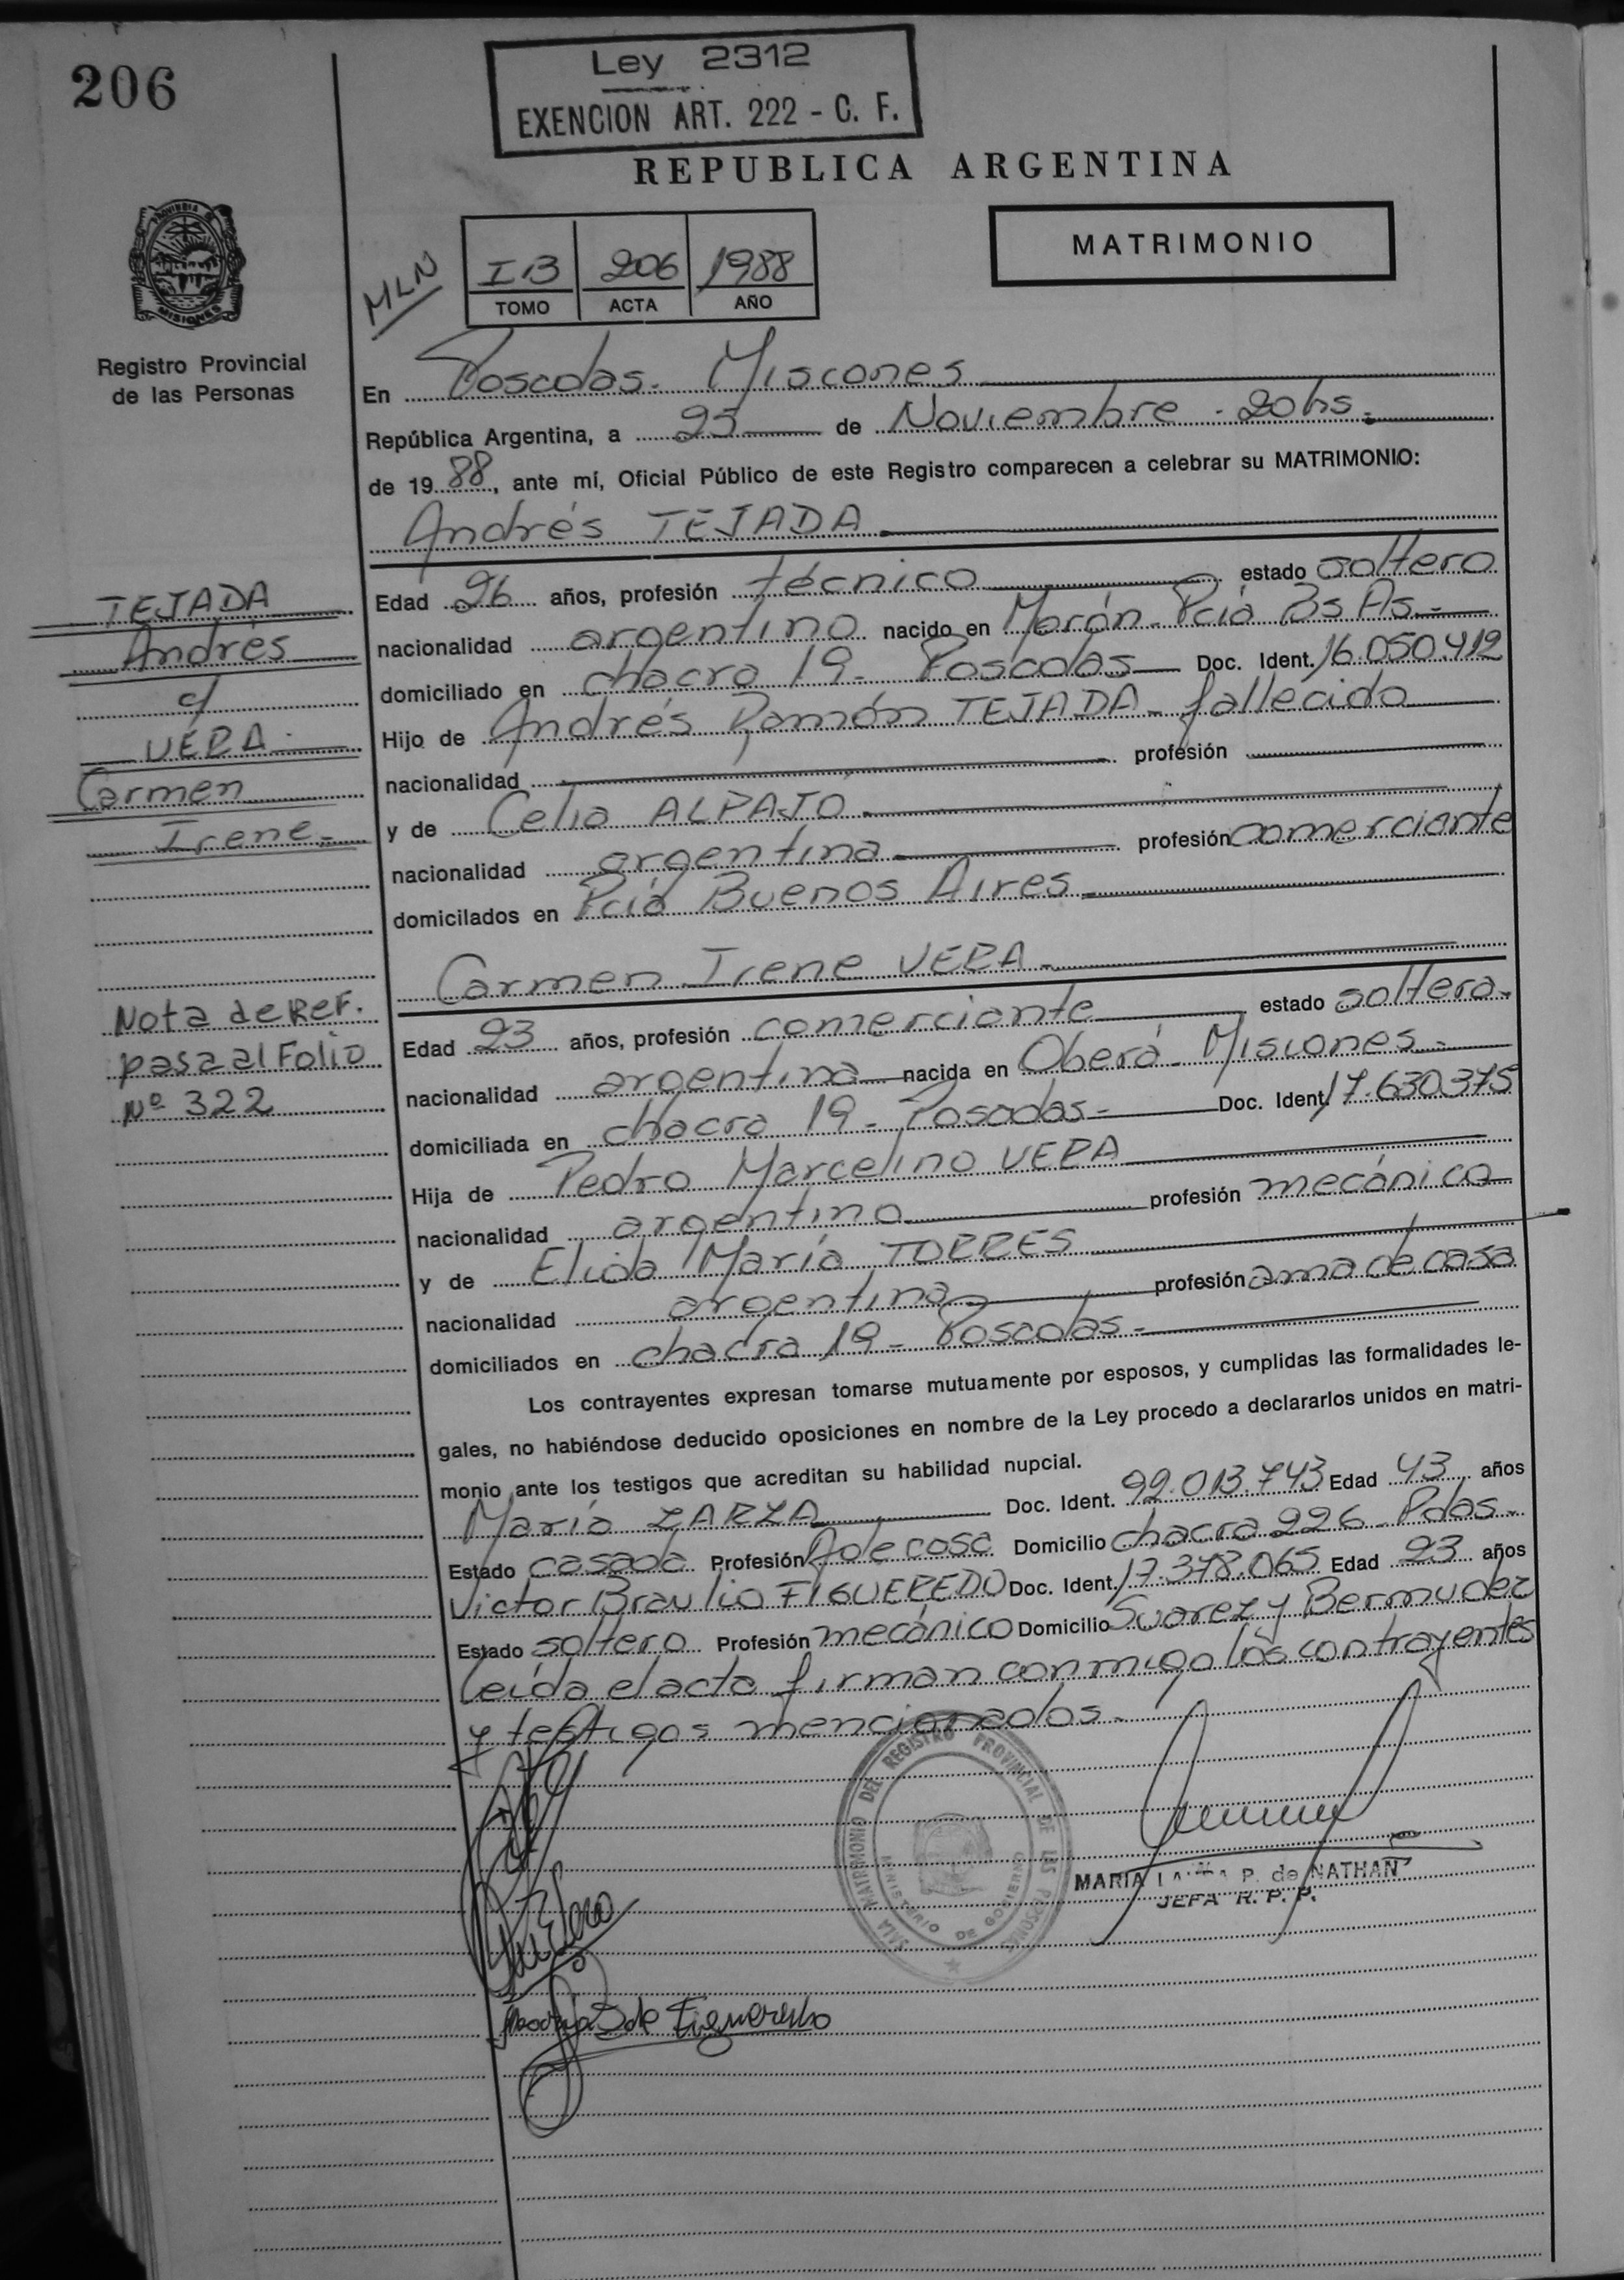 206
Ley 2312
EXENCION ART. 222 - C. F.
REPUBLICA ARGENTINA
MATRIMONIO
MLN
I B 206 1988
TOMO ACTA AÑO
PROVINCIA DE
MISIONES
Registro Provincial
de las Personas
En Posadas - Misiones
República Argentina, a 25 de Noviembre - 20hs.-
de 1988, ante mí, Oficial Público de este Registro comparecen a celebrar su MATRIMONIO:
Andrés TEJADA
TEJADA
Andrés
c/
VERA
Carmen
Irene-
Edad 26 años, profesión técnico estado soltero
nacionalidad argentino nacido en Morón - Pcia Bs As.-
domiciliado en chacra 19 - Posadas Doc. Ident. 16.050.412
Hijo de Andrés Ramón TEJADA - fallecido
nacionalidad profesión
y de Celia ALPAJÓ
nacionalidad argentina profesión comerciante
domicilados en Pcia Buenos Aires -
Carmen Irene VERA -
Nota de Ref.
pasa al Folio
Nº 322
Edad 23 años, profesión comerciante estado soltera-
nacionalidad argentina nacida en Oberá - Misiones -
domiciliada en chacra 19 - Posadas - Doc. Ident. 17.630.375
Hija de Pedro Marcelino VERA
nacionalidad argentino profesión mecánico
y de Elida María TORRES
nacionalidad argentina profesión ama de casa
domiciliados en chacra 19 - Posadas -
Los contrayentes expresan tomarse mutuamente por esposos, y cumplidas las formalidades le-
gales, no habiéndose deducido oposiciones en nombre de la Ley procedo a declararlos unidos en matri-
monio ante los testigos que acreditan su habilidad nupcial.
María ZARZA Doc. Ident. 92.013.743 Edad 43 años
Estado casada Profesión A de casa Domicilio chacra 226 - Pdas -
Victor Braulio FIGUEREDO Doc. Ident. 17.378.065 Edad 23 años
Estado soltero Profesión mecánico Domicilio Suarez y Bermudez
leída el acta firman conmigo los contrayentes
y testigos mencionados -
SALA MATRIMONIO DEL REGISTRO PROVINCIAL DE LAS PERSONAS
MINISTERIO DE GOBIERNO
MARIA P. de NATHAN
JEFA R. P. P.
María Z de Figueredo